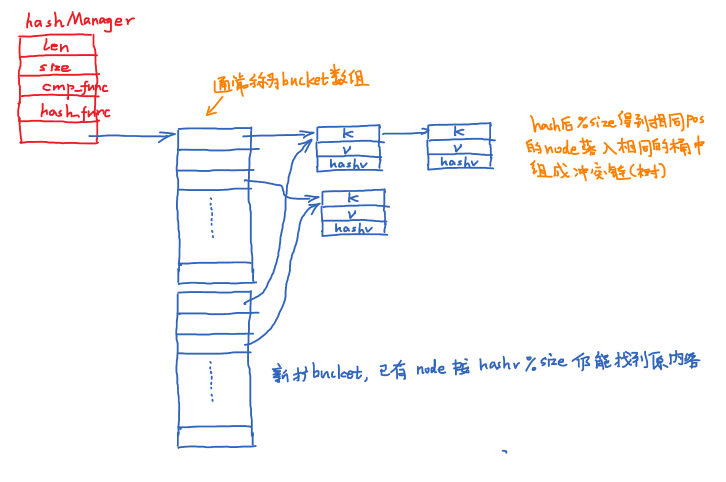 hashManager
len
size
cmp_func
hash_func
通常称为bucket数组
k
v
hashv
k
v
hashv
hash后%size得到相同pos
的node接入相同的桶中
组成冲突链(树)
k
v
hashv
新扩bucket, 已有 node 按 hashv % size 仍能找到原内容